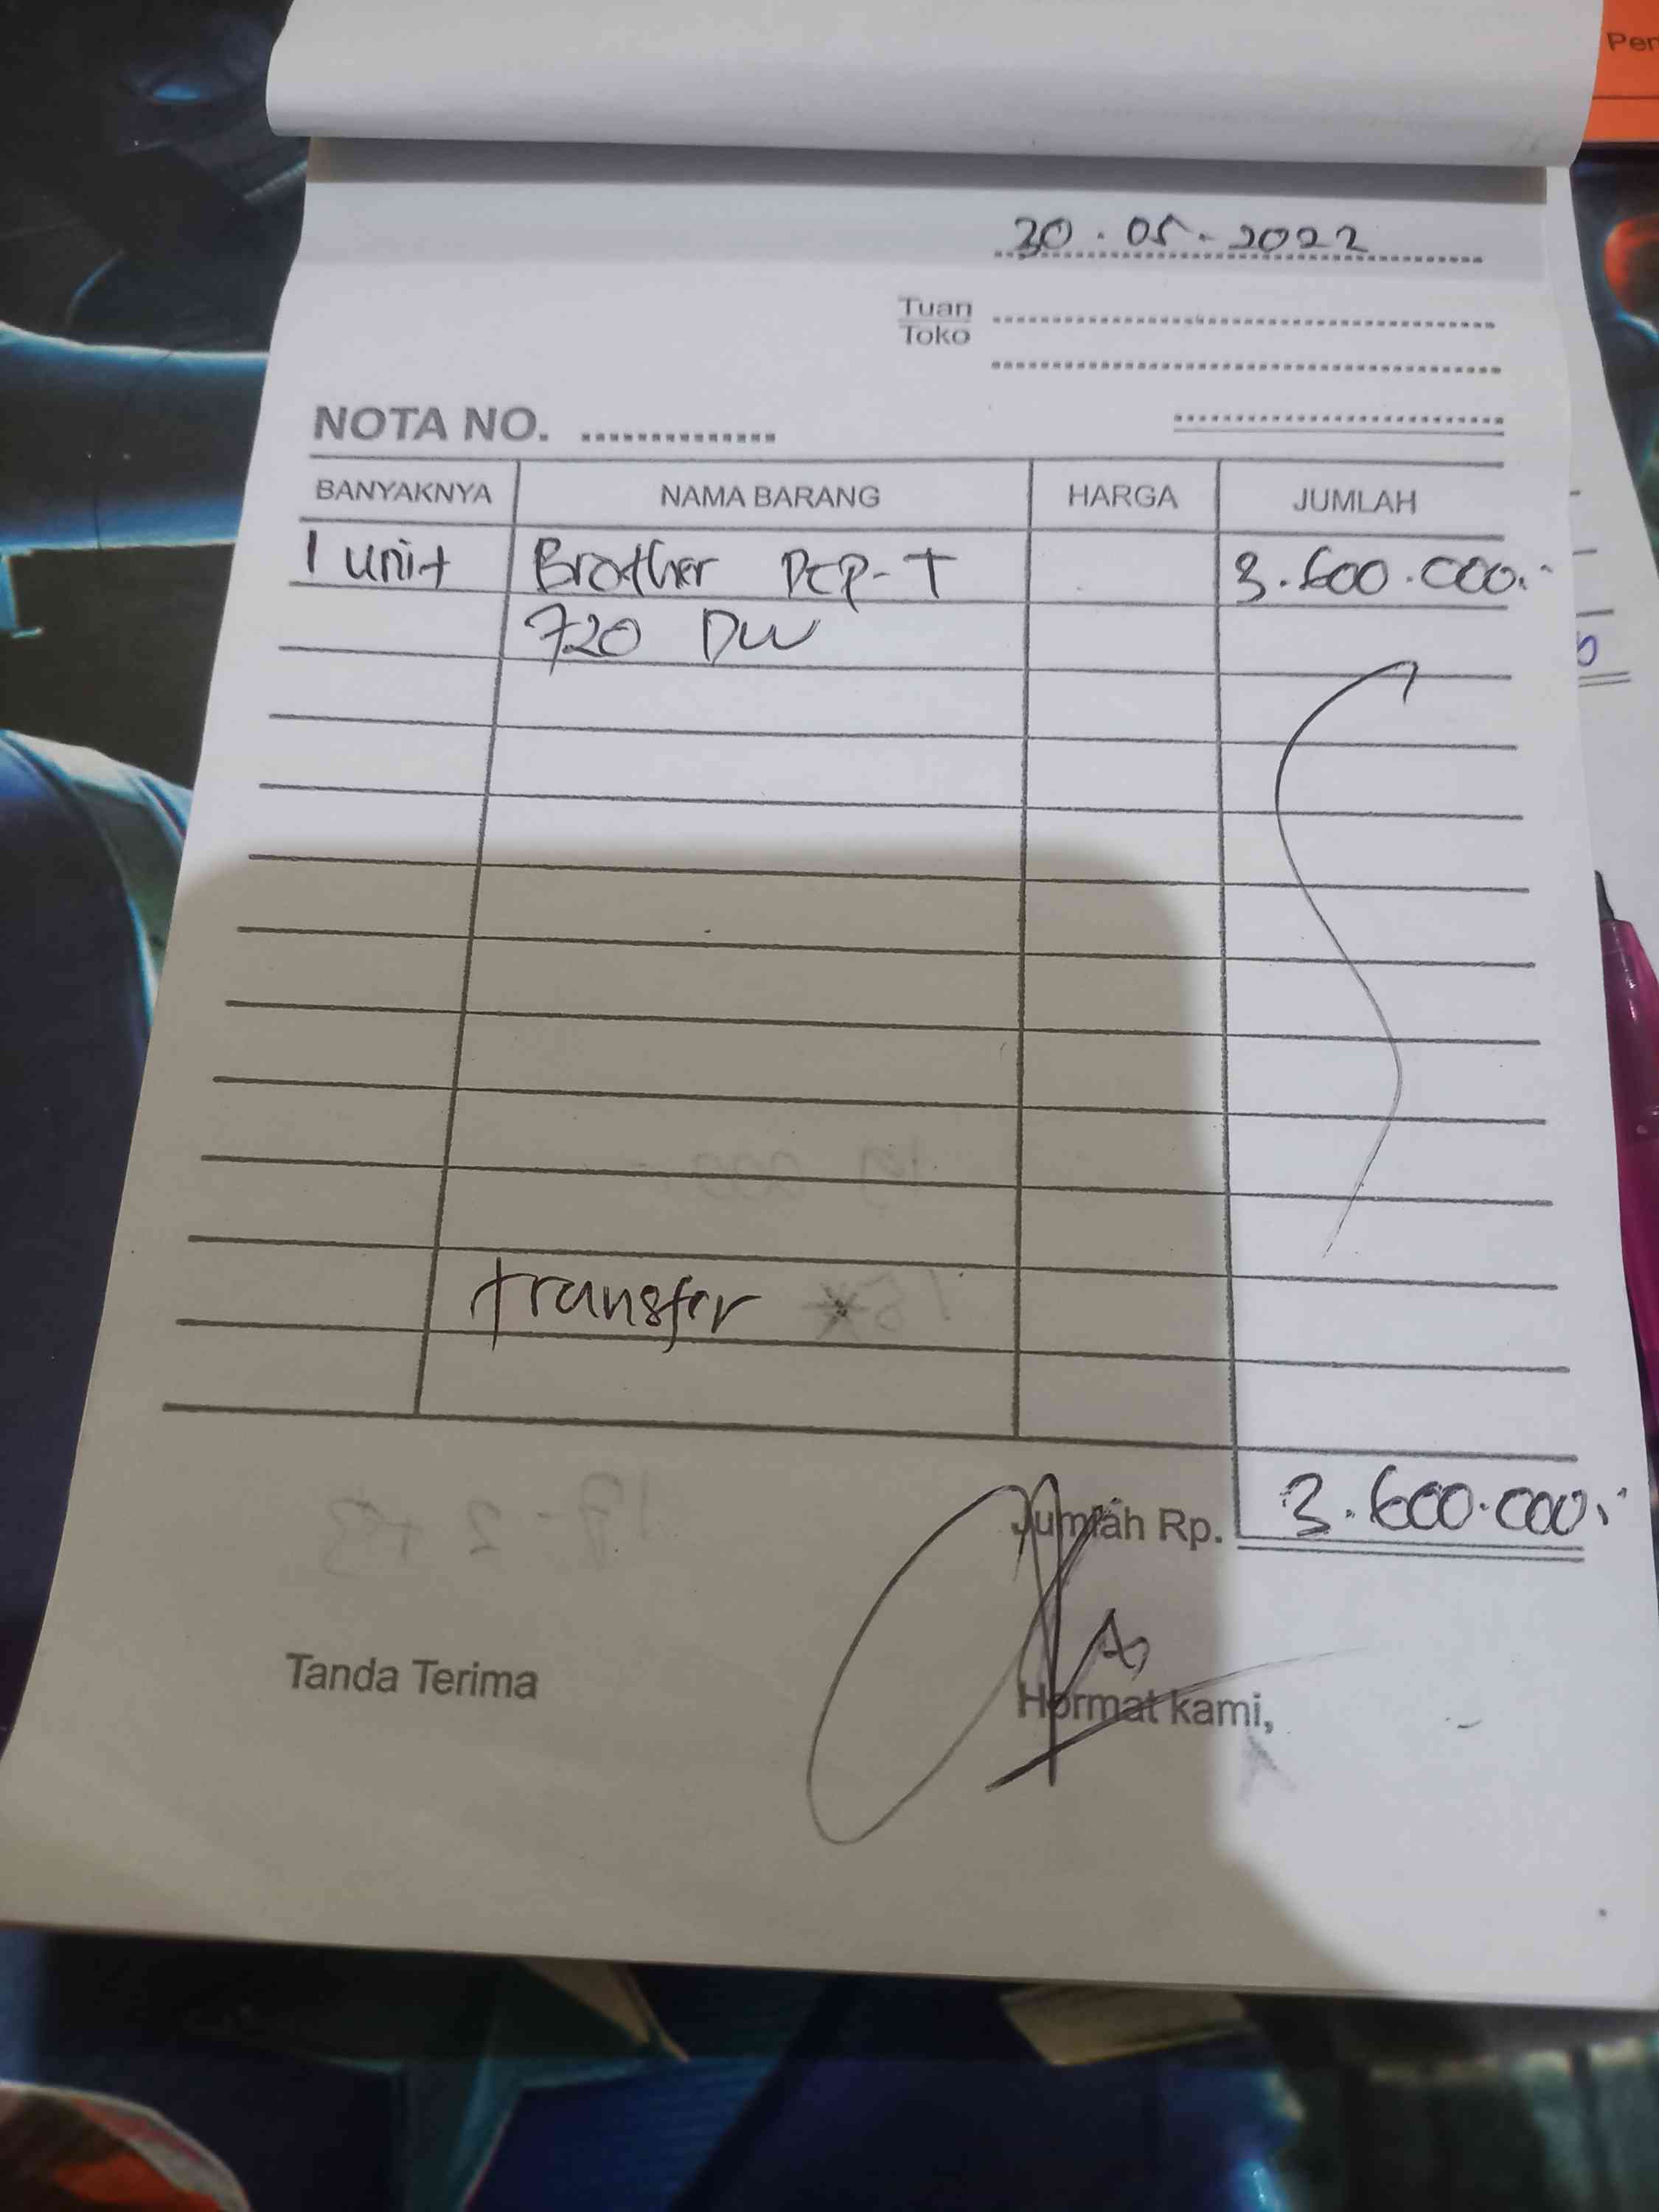 Per
30.05.2022
Tuan
Toko
NOTA NO. ..............
BANYAKNYA NAMA BARANG HARGA JUMLAH
1 unit Brother DCP-T 3.600.000,-
720 DW
transfer
Jumlah Rp. 3.600.000,-
Tanda Terima Hormat kami,